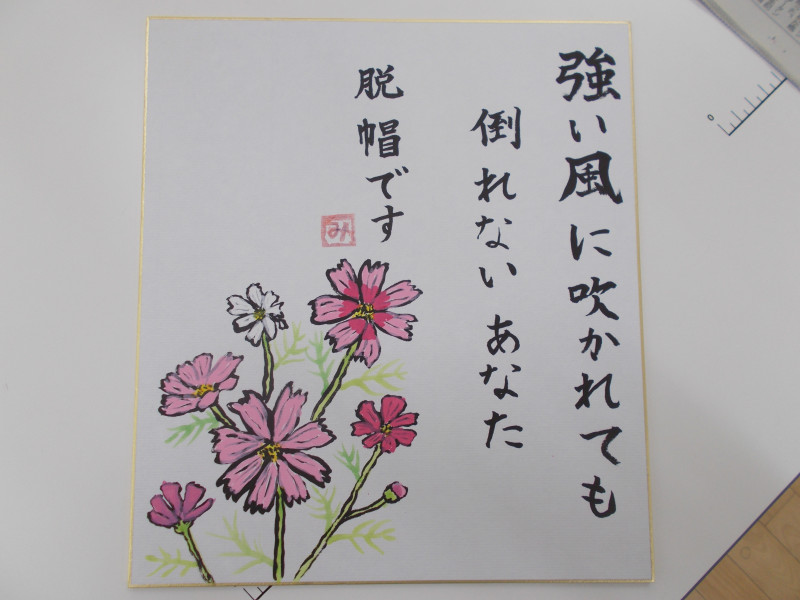 強い風に吹かれても
倒れない あなた
脱帽です
み
0